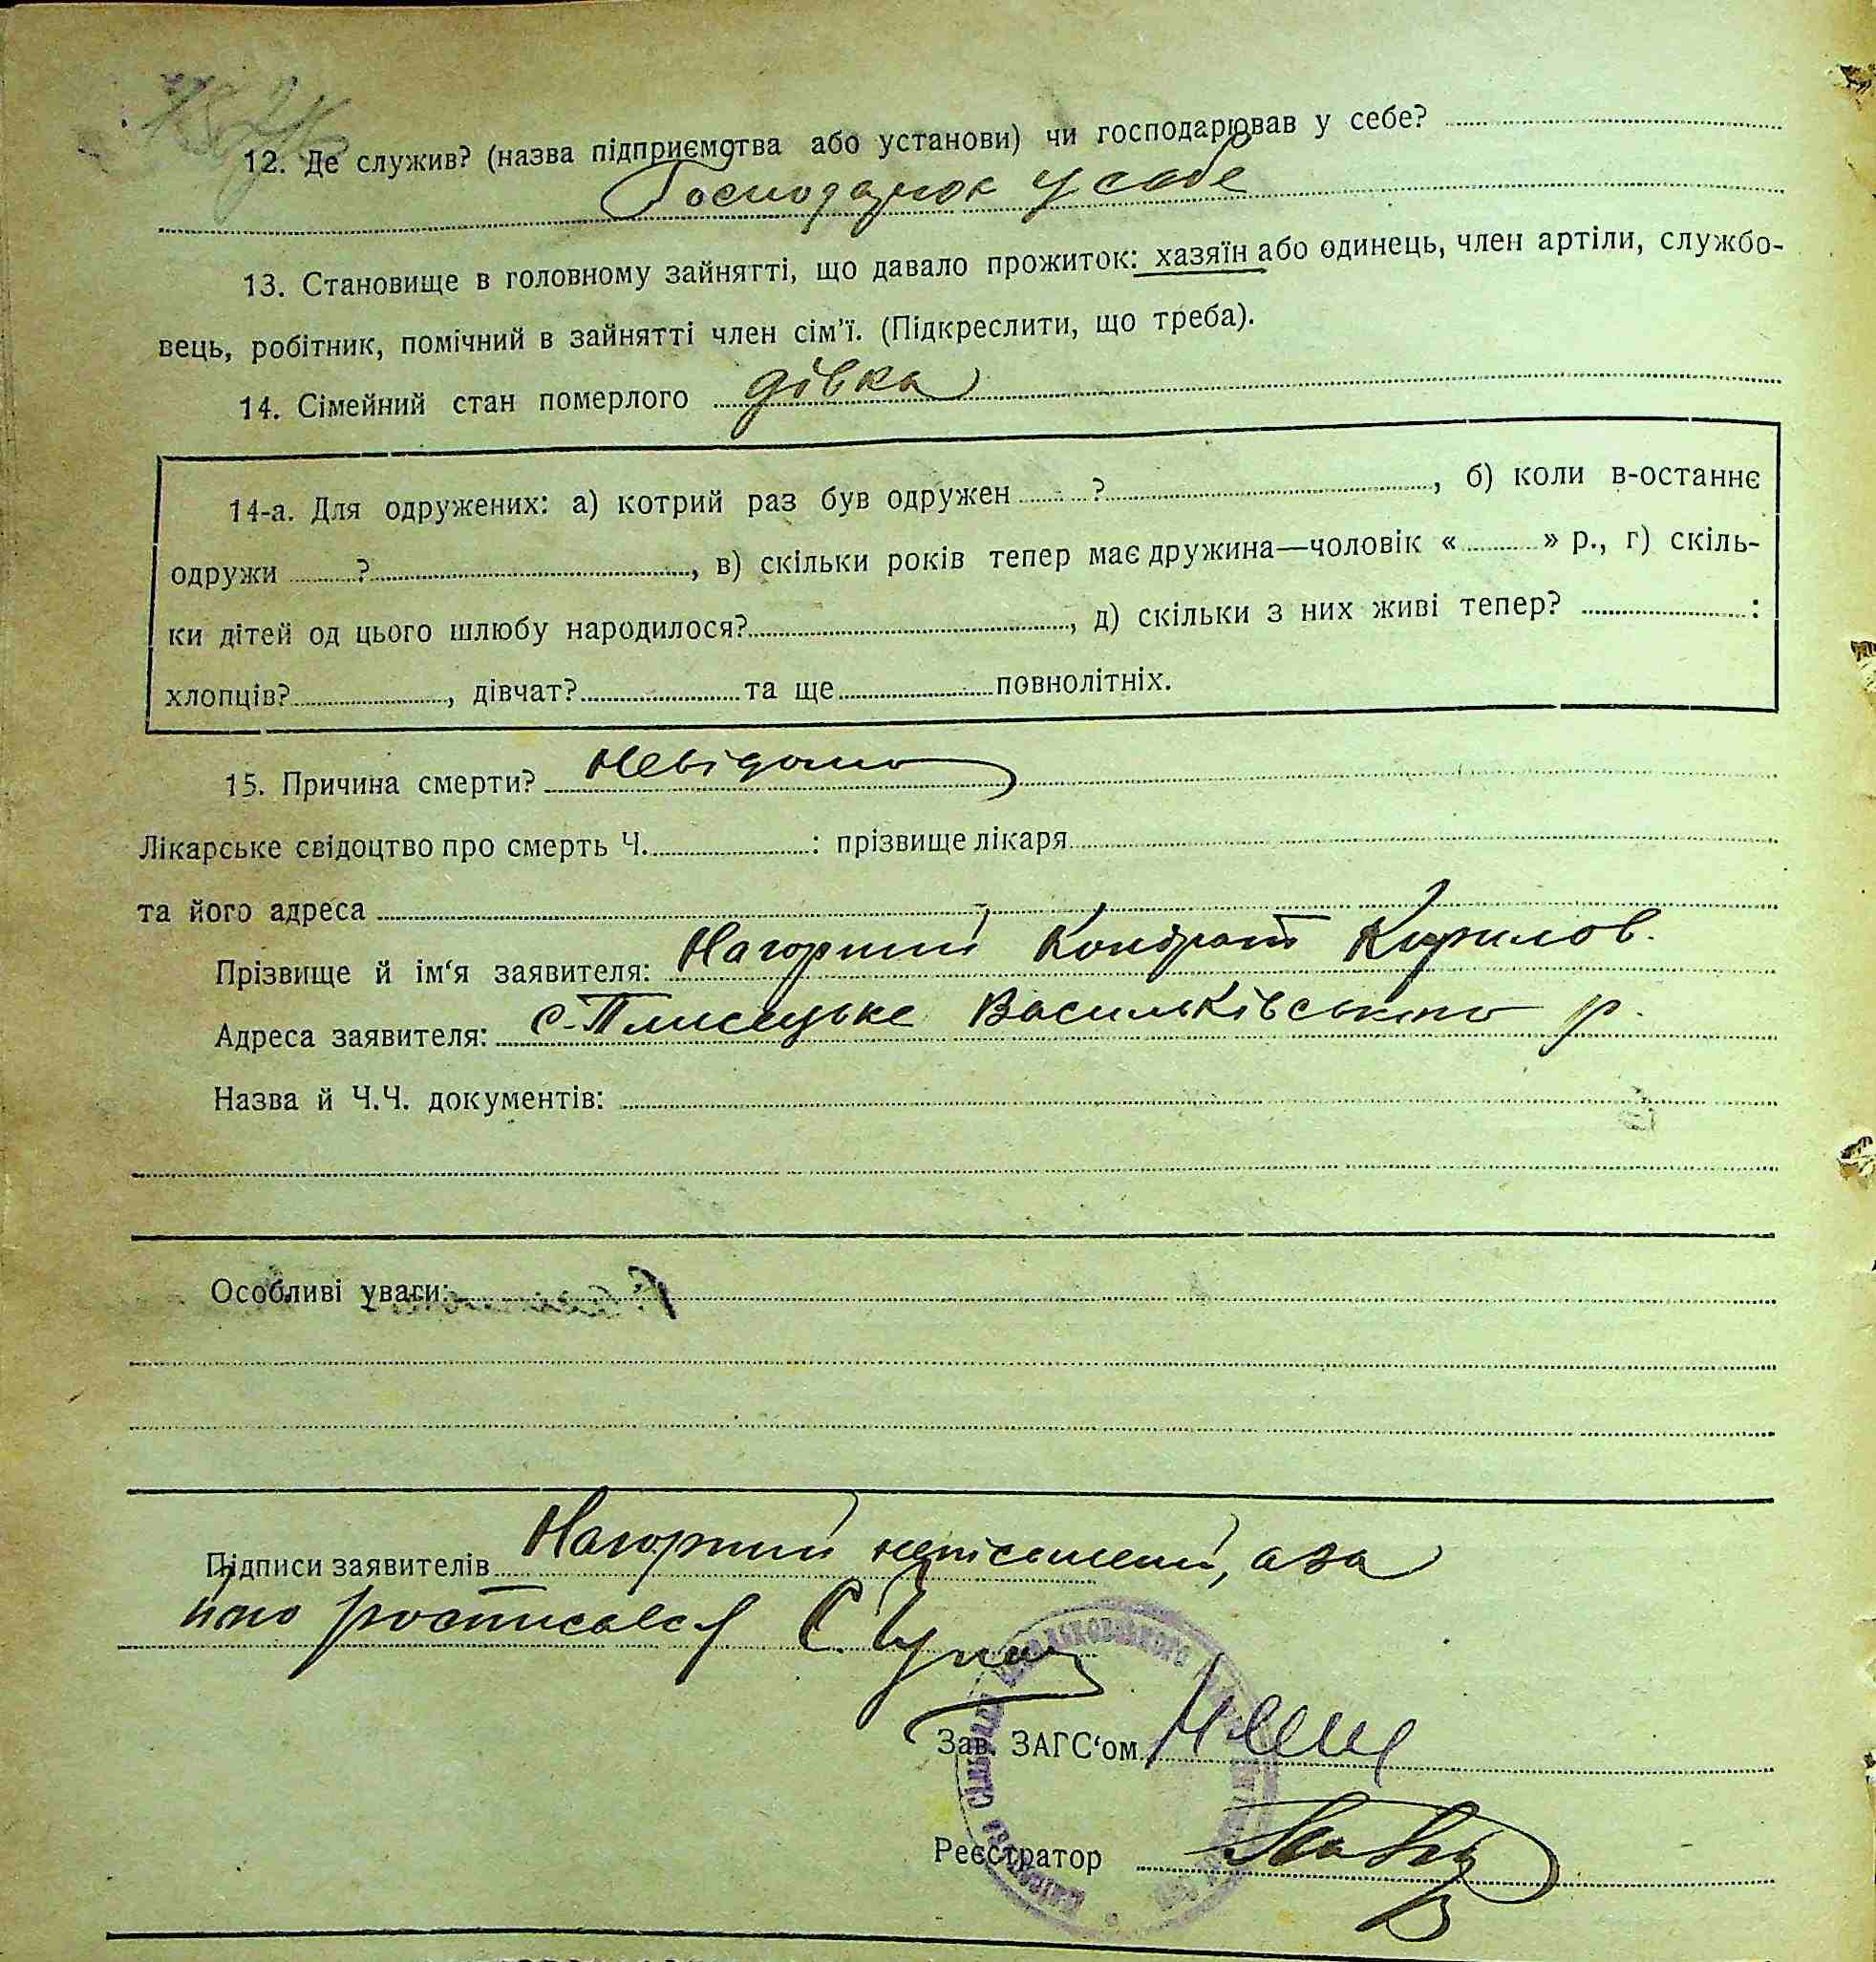 12. Де служив? (назва підприємства або установи) чи господарював у себе?
Господарює у себе
13. Становище в головному зайнятті, що давало прожиток: хазяїн або одинець, член артіли, службо-
вець, робітник, помічний в зайнятті член сім'ї. (Підкреслити, що треба).
14. Сімейний стан померлого дівка
14-а. Для одружених: а) котрий раз був одружен ? , б) коли в-останнє
одружи ? , в) скільки років тепер має дружина—чоловік « » р., г) скіль-
ки дітей од цього шлюбу народилося? , д) скільки з них живі тепер? :
хлопців? , дівчат? та ще повнолітніх.
15. Причина смерти? Невідомо
Лікарське свідоцтво про смерть Ч. : прізвище лікаря
та його адреса
Прізвище й ім'я заявителя: Нагорний Кондрат Кирилов.
Адреса заявителя: с. Плисецьке Васильківського р.
Назва й Ч.Ч. документів:
Особливі уваги:
Підписи заявителів Нагорний неписьмений, а за
його росписався С.
Зав. ЗАГС'ом
Реєстратор